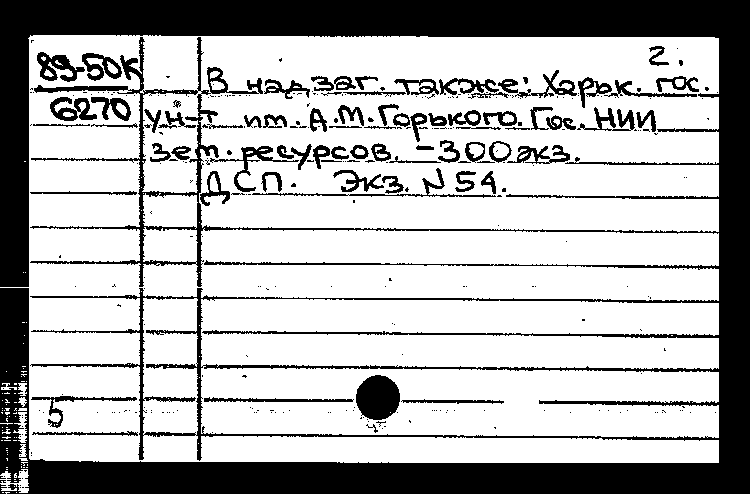 2.
89-50К
6270
В надзаг. также: Харьк. гос.
ун-т им. А.М.Горького. Гос. НИИ
зем. ресурсов. - 300 экз.
ДСП. Экз. N 54.
5